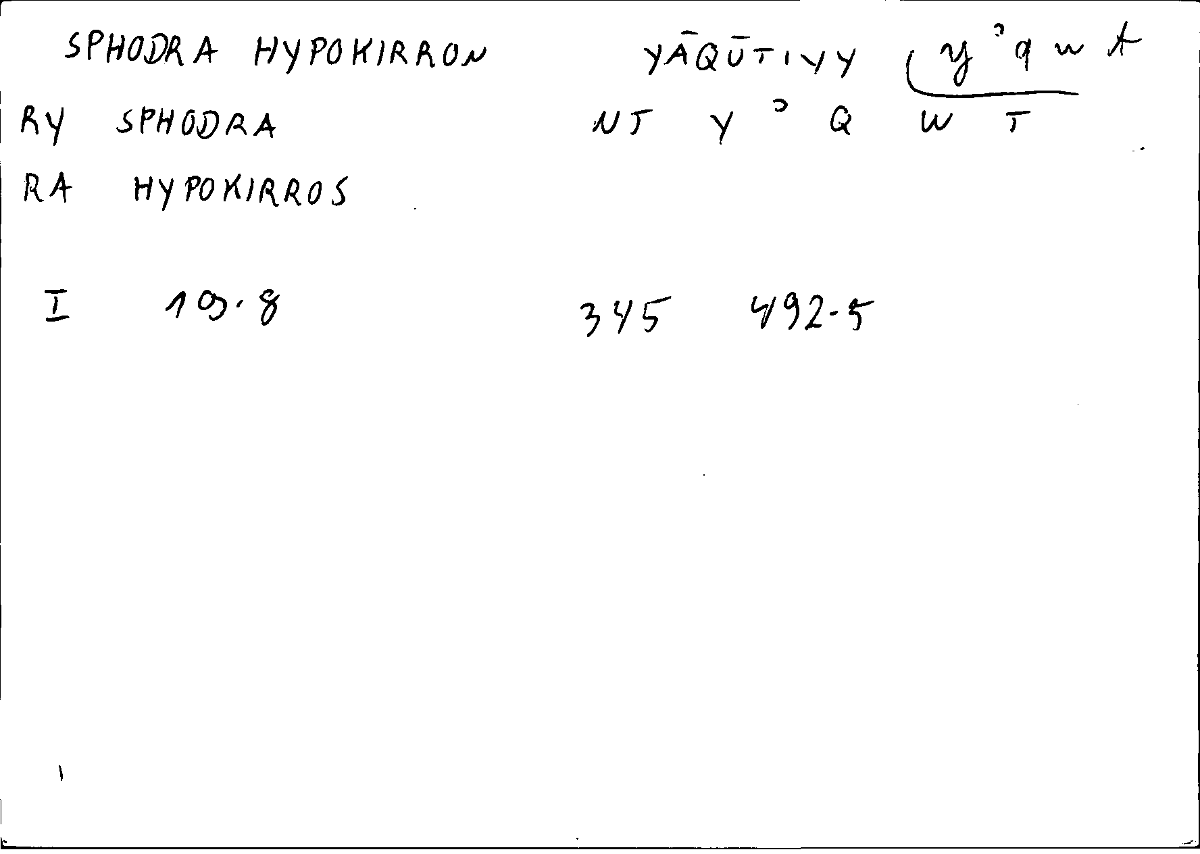 SPHODRA HYPOKIRRON YĀQŪTIYY y ʾ q w t
RY SPHODRA NT Y ʾ Q W T
RA HYPOKIRROS
I 109.8 345 492.5